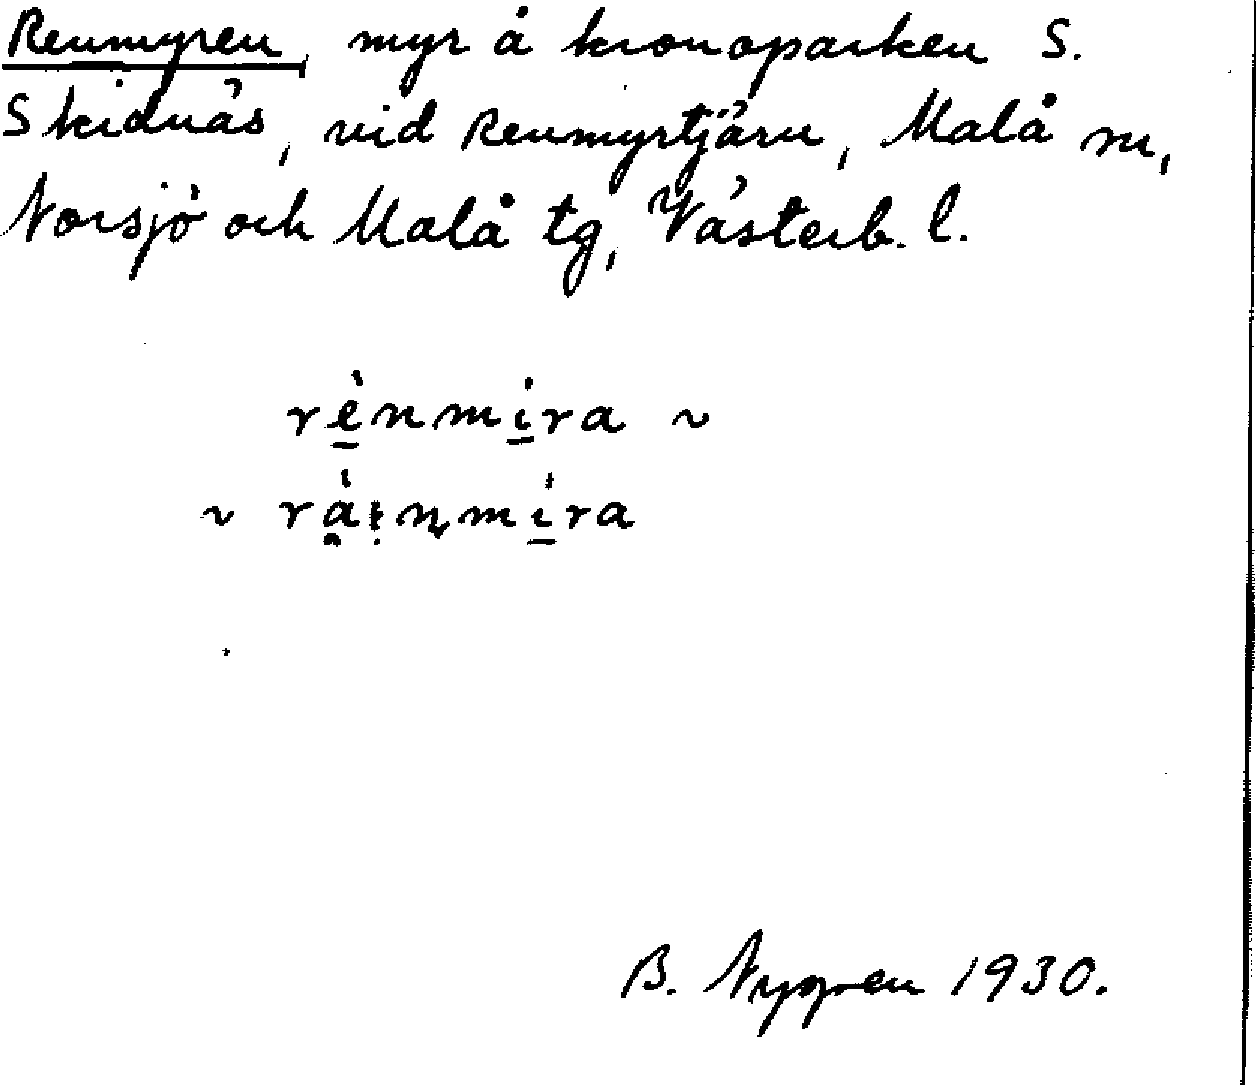 Renmyren, myr å kronoparken S.
Skidnäs, vid Renmyrtjärn, Malå sn,
Norsjö och Malå tg, Västerb. l.
rènmíra ~
~ ràinmíra
B. Nygren 1930.